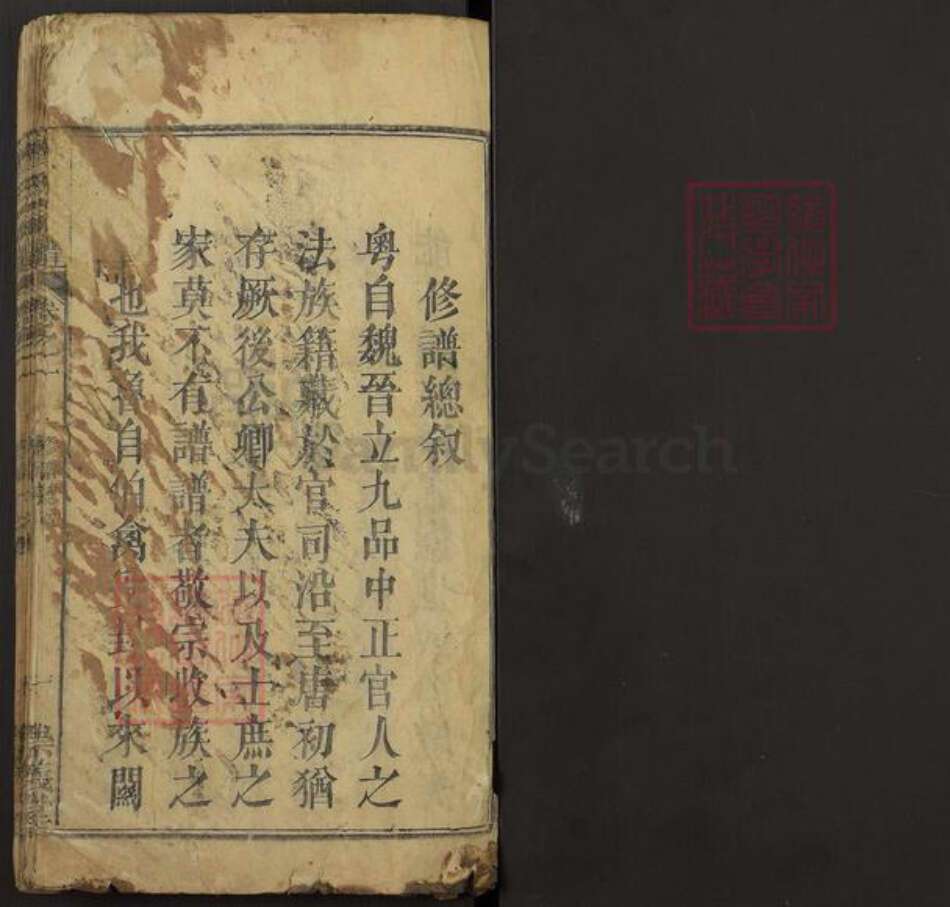 修譜總叙
粤自魏晉立九品中正官人之
法族籍藏於官司沿至唐初猶
存厥後公卿大夫以及士庶之
家莫不有譜譜者敬宗收族之
也我魯自伯禽封以來闢
FamilySearch